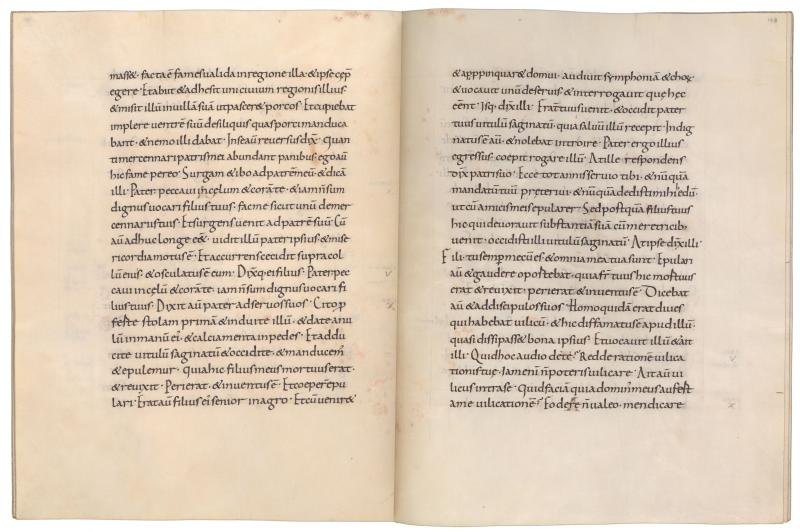 mass&· facta ē fames ualida in regione illa· & ipse cęp
egere· Et abiit & adhesit uni ciuium regionis illius·
& misit illū in uillā suā ut pascer& porcos· Et cupiebat
implere uentrē suū de siliquis quas porci manduca
bant· & nemo illi dabat· In se aū reuersus dix̄· Quan
ti mercennarii patris mei abundant panibus· ego aū
hic fame pereo· Surgam & ibo ad patrē meū· & dicā
illi· Pater peccaui in cęlum & corā te· & iam ñ sum
dignus uocari filius tuus· fac me sicut unū de mer
cennariis tuis· Et surgens uenit ad patrē suū· Cū
aū adhuc longe ee&· uidit illū pater ipsius· & mise
ricordia motus ē· Et accurrens cecidit supra col
lū eius· & osculatus ē eum· Dix̄q· ei filius· Pater pec
caui in cęlū & corā te· iam ñ sum dignus uocari fi
lius tuus· Dixit aū pater ad seruos suos· Cito p̄
ferte stolam primā & induite illū· & date anu
lū in manū ei· & calciamenta in pedes· Et addu
cite uitulū saginatū & occidite· & manducem
& epulemur· quia hic filius meus mortuus erat·
& reuixit· Perierat· & inuentus ē· Et coeperē epu
lari· Erat aū filius ei senior in agro· Et cū uenir&
& appinquar& domui· audiuit symphoniā & chorū
& uocauit unū de seruis & interrogauit quę hęc
eēnt· Isq· dix illi· Frat̄ tuus uenit· & occidit pater
tuus uitulū saginatū· quia saluū illū recepit· Indig
natus ē aū· & nolebat introire· Pater ergo illius
egressus· coepit rogare illū· At ille respondens
dix patri suo· Ecce tot annis seruio tibi· & nūquā
mandatū tuū pręteriui· & nūquā dedisti mihi ędū·
ut cū amicis meis epularer· Sed postquā filius tuus
hic qui deuorauit substantiā suā cū meretricib;
uenit· occidisti illi uitulū saginatū· At ipse dix illi·
Fili· tu semper mecū es· & omnia mea tua sunt· Epulari
aū & gaudere oportebat· quia frat̄ tuus hic mortuus
erat & reuixit· perierat & inuentus ē· Dicebat
aū & ad discipulos suos· Homo quidā erat diues
qui habebat uilicū· & hic diffamatus ē apud illū·
quasi dissipass& bona ipsius· Et uocauit illū & ait
illi· Quid hoc audio de te· Redde rationē uilica
tionis tuę· Iam enī ñ poteris uilicare· Ait aū ui
licus intra se· Quid faciā quia domin' meus aufert
a me uilicationē· Fodere ñ ualeo· mendicare